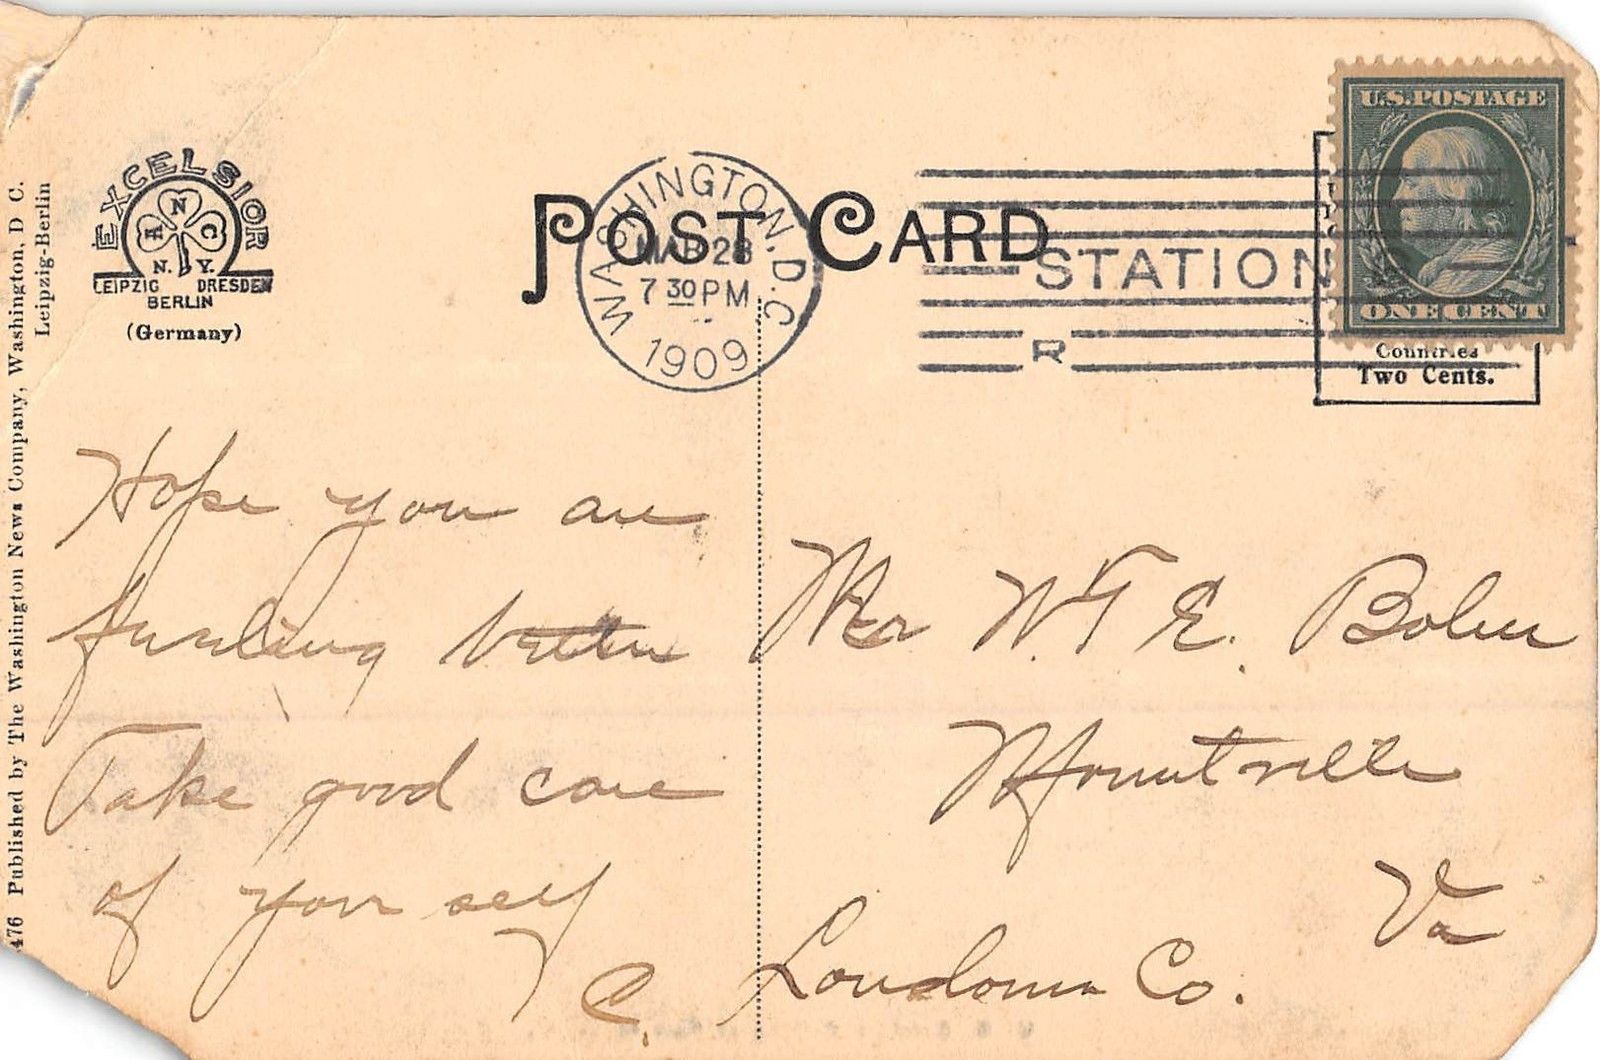 476 Published by The Washington News Company, Washington, D C.
Leipzig-Berlin
EXCELSIOR
A N C
N. Y.
LEIPZIG DRESDEN
BERLIN
(Germany)
POST CARD
WASHINGTON, D.C.
MAR 28
7 30 PM
1909
STATION
R
U.S. POSTAGE
ONE CENT
Countries
Two Cents.
Hope you are
feeling better
Take good care
of your self
C.
Mr W. T. E.
Mountville
Va
Loudoun Co.